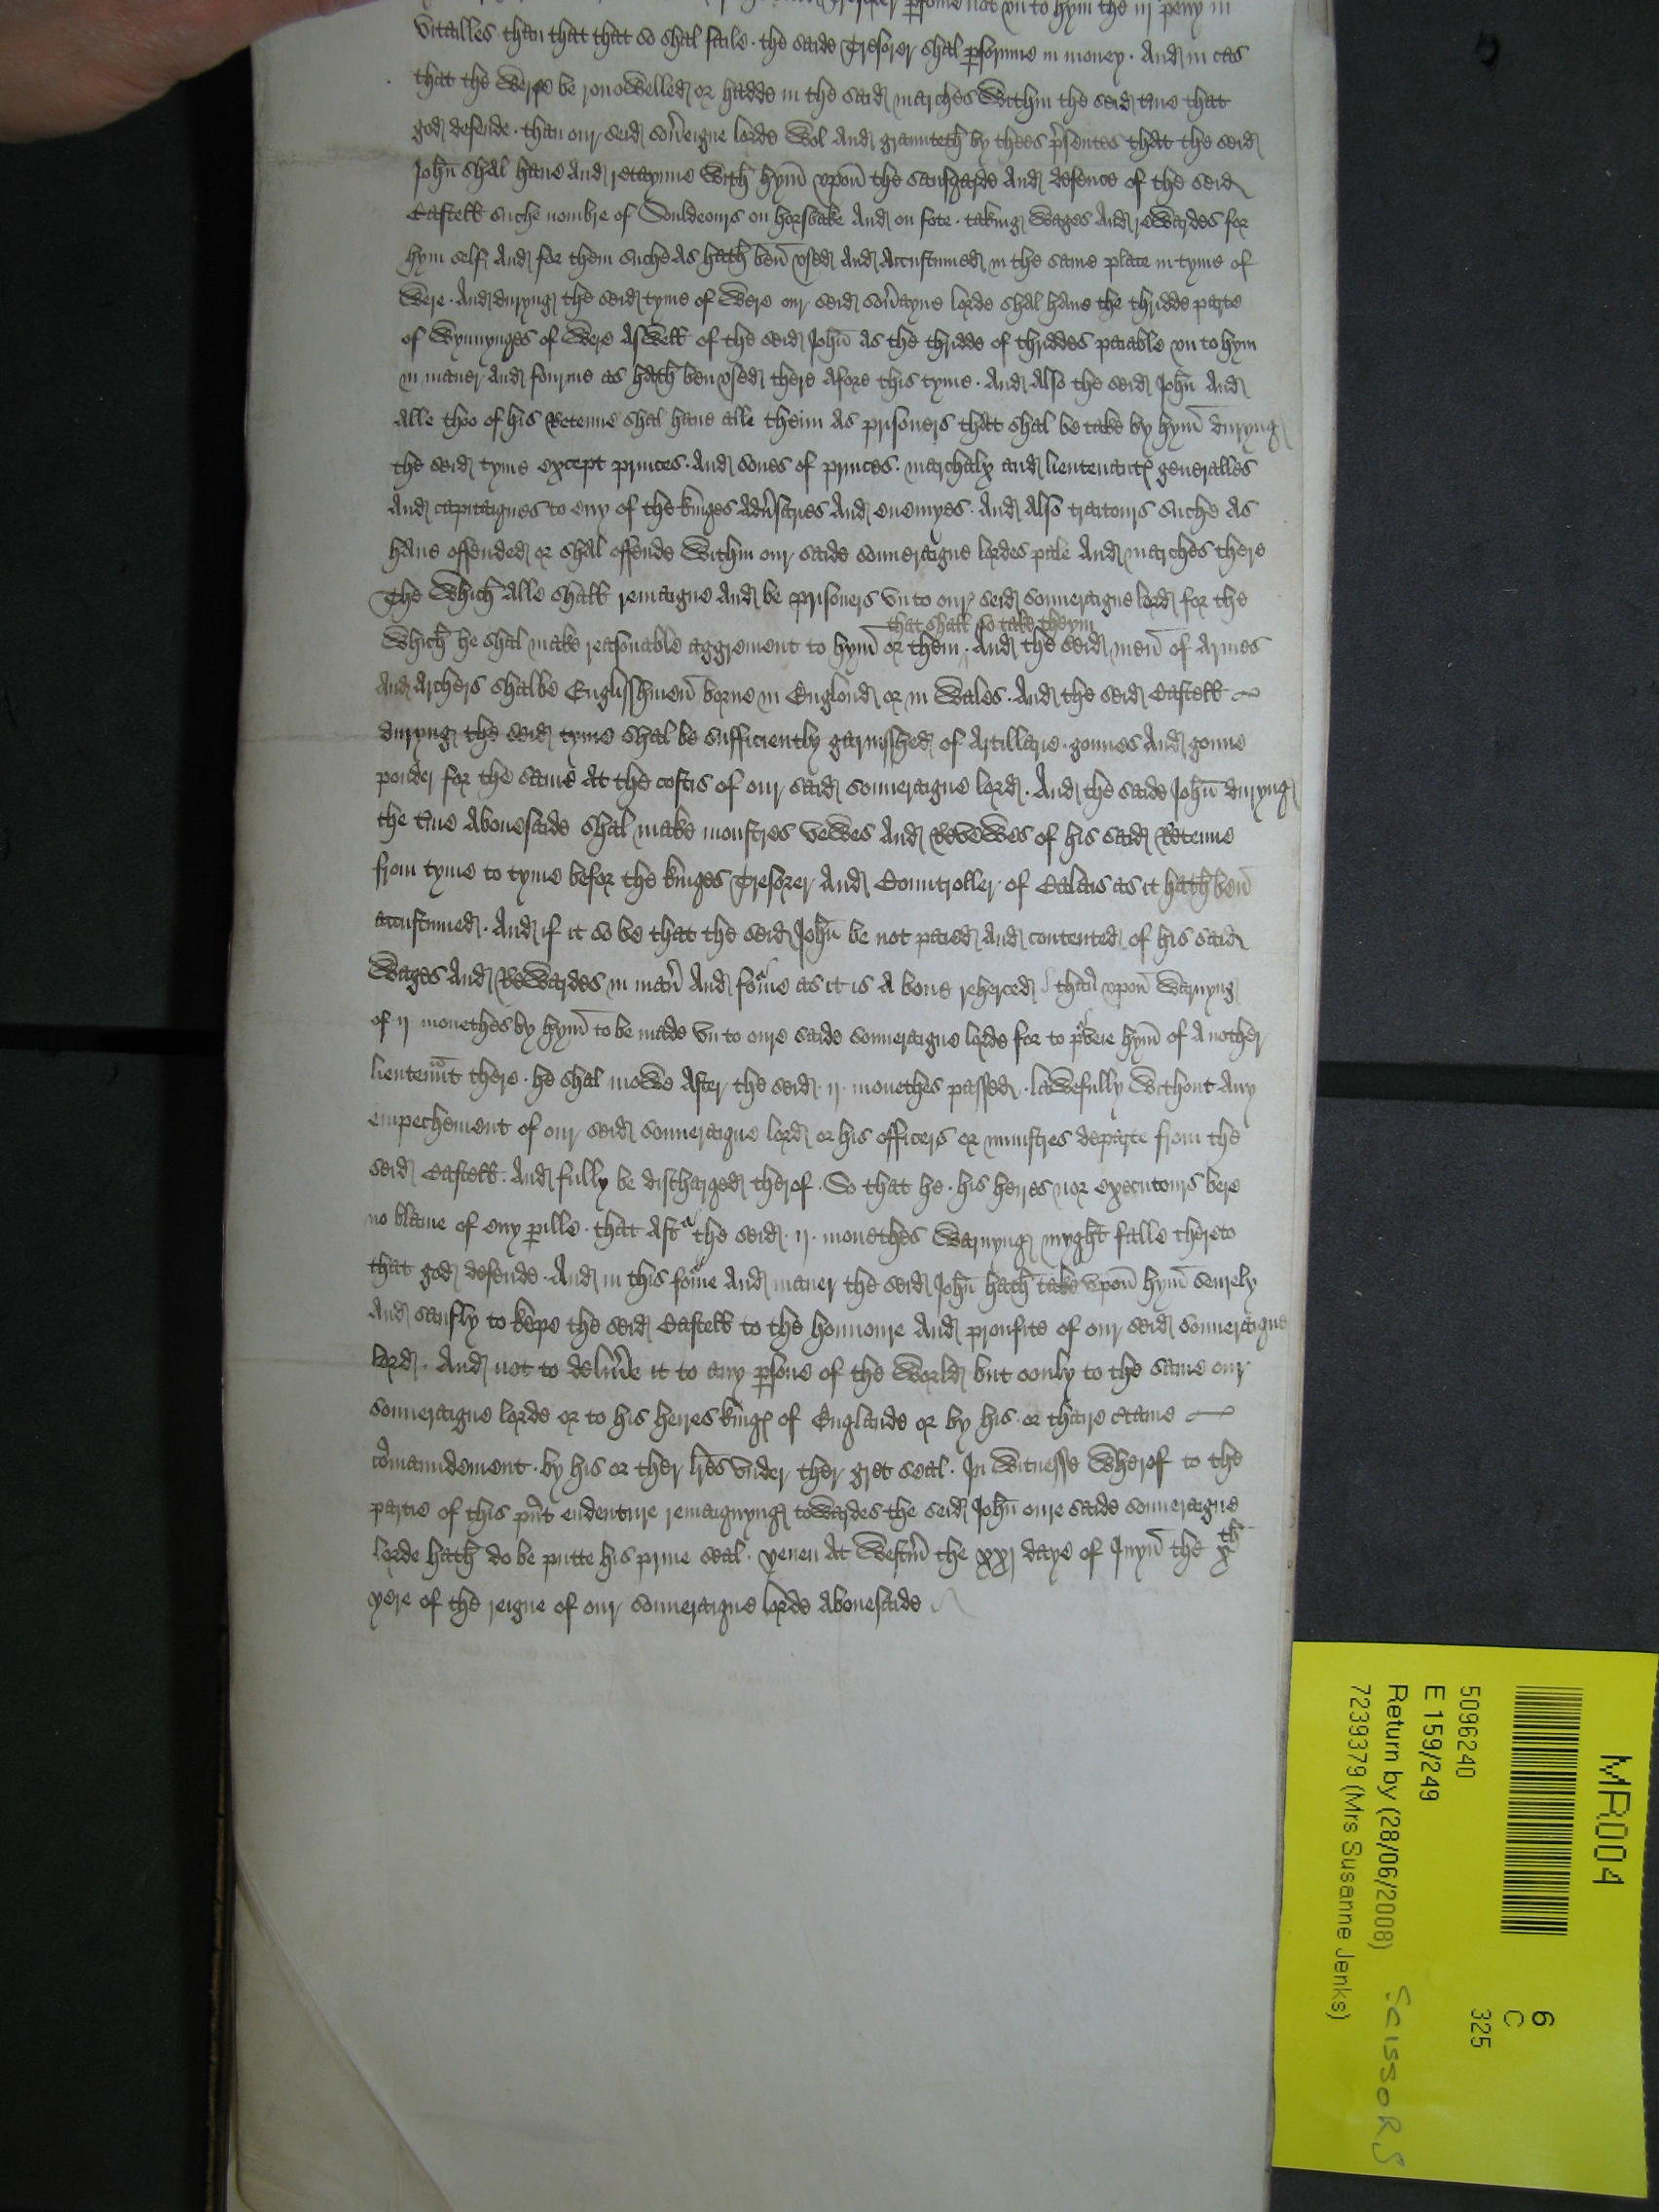 not vn to hym the iij peny in
vitailles than that that so shal faile. the saide Tresorer shal pfourme in money. And in cas
that the Werre be renoWelled or hadde in the said marches Within the seid time that
god defende. than our seid soueigne lorde Wol And graunteth by thees psentes that the seid
John shal haue And retayne With hym vpon the saufgarde And defence of the seid
Castell suche nombre of Souldeours on horsbake And on fote. taking Wages And reWardes for
hym self And for them suche As hath ben vsed And Accustumed in the same place in tyme of
Were. And duryng the seid tyme of Were our seid souayne lorde shal haue the thridde parte
of Wynnynges of Were AsWell of the seid John As the thridde of thriddes paiable vn to hym
in maner And fourme as hath ben vsed there Afore this tyme. And Also the seid John And
Alle thoo of his Retenue shal haue alle theim As prisoners that shal be take by hym duryng
the seid tyme except princes. And sones of princes. marchalx and lieutenantz generalles
And capitaignes to eny of the kinges Aduersaries And enemyes. And Also traitours suche As
haue offended or shal offende Within our saide souueraigne lordes pale And marches there
The Which Alle shall remaigne And be prisoners vn to our seid souueraigne lord for the
that shall so take theym
Which he shal make reasonable aggrement to hym or them. And the seid men of Armes
And Archers shalbe Englisshmen borne in Englond or in Wales. And the seid Castell
duryng the seid tyme shal be sufficiently garnisshed of Artillarie. gonnes And gonne
pouder for the same At the costis of our said souueraigne lord. And the saide John duryng
the time Abouesaide shal make monstres veWes And ReveWes of his said Retenue
from tyme to tyme before the kinges Tresorer And Countroller of Calais as it hath ben
accustumed. And if it so be that the seid John be not paied And contented of his said
Wages And ReWardes in maner And fourme as it is A boue reherced than vpon Warnyng
of ij monethes by hym to be made vn to oure saide souueraigne lorde for to pveie hym of A nother
lieutennt there. he shal moWe After the seid. ij. monethes passed. laWefully Without Any
empechement of our seid souueraigne lord or his officers or ministres departe from the
seid Castell. And fully be discharged therof. So that he. his heires nor executours bere
no blame of eny pille. that Aft the seid. ij. monethes Warnyng myght falle thereto
that god defende. And in this fourme And maner the seid John hath take vpon hym seurely
And saufly to kepe the seid Castell to the honnoure And proufite of our seid souueraigne
lord. And not to deliue it to any psone of the World but oonly to the same our
souueraigne lorde or to his heires kingz of Englande or by his or thaire
comaundement. by his or ther lres vnder ther gret seal. In Witnesse Wherof to the
partie of this pnt endenture remaignyng toWardes the seid John oure saide souueraigne
lorde hath do be putte his priue seal. yeuen At Westm the xxj daye of Juyn the x th
yere of the reigne of our souueraigne lorde Abouesaide
MR004
5096240
E 159/249
Return by (28/06/2008)
7239379 (Mrs Susanne Jenks)
6
C
325
SCISSORS